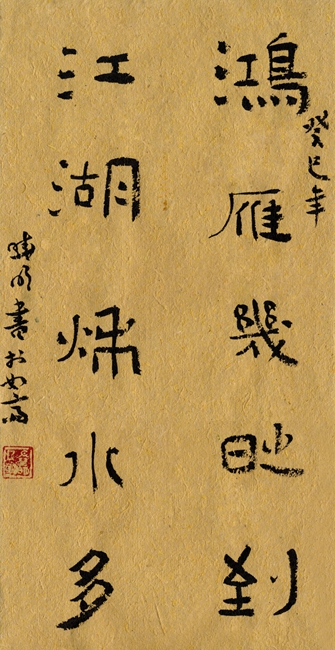 癸巳年
鴻雁幾時到
江湖秋水多
曉明書於